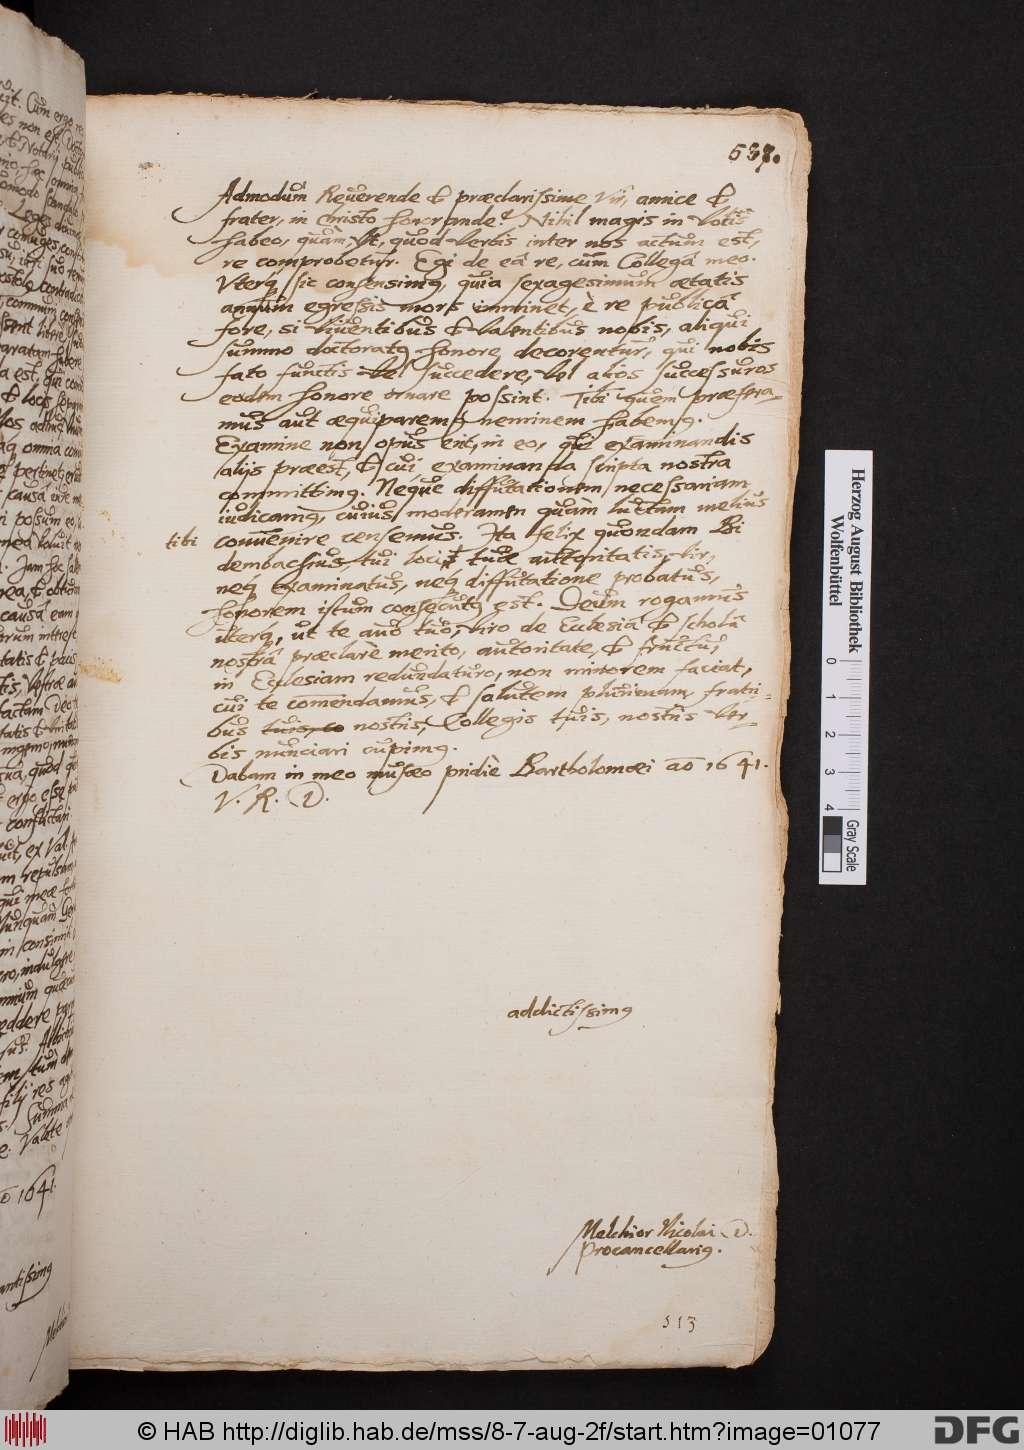 537.
Admodum Reverende & præclarissime Vir, amice &
frater, in Christo honorande. Nihil magis in votis
habeo, quàm, Vt, quod verbis inter nos actum est,
re comprobetur. Egi de eâ re, cum Collegâ meo.
Vterq sic consensimq, quia sexagesimum ætatis
annum egressis mors imminet, è re publicâ
fore, si viventibus & valentibus nobis, aliqui
summo doctoratq honore decorentur, qui nobis
fato functis vel succedere, vel alios successuros
eodem honore ornare possint. Tibi quem præfera-
mus aut æquiparemq neminem habemq.
Examine non opus erit, in eo, qui examinandis
alijs præest, & cui examinanda scripta nostra
committimq. Neque disputationem necessariam
iudicamq, cuius moderamen quàm luctam melius
tibi convenire censemus. Ita felix quondam Bi
dembachius tui loci & tuæ authoritatis vir,
neq Examinatus, neq disputatione probatus,
honorem istum consecutq est. Deum rogamus
uterq, ut te avo tuo, viro de Ecclesiâ & scholâ
nostrâ præclarè merito, autoritate, & fructu,
in Ecclesiam redundaturo, non minorem faciat,
cui te comendamus, & salutem plurimam fratri=
bus nostris, Collegis tuis, nostris ver-
bis nunciari cupimq.
Dabam in meo musæo pridiè Bartholomæi aõ 1641.
V. R. D.
addictissimq
Melchior Nicolai D.
Procancellariq.
513
Herzog August Bibliothek
Wolfenbüttel
0 1 2 3 4
Gray Scale
© HAB http://diglib.hab.de/mss/8-7-aug-2f/start.htm?image=01077
DFG